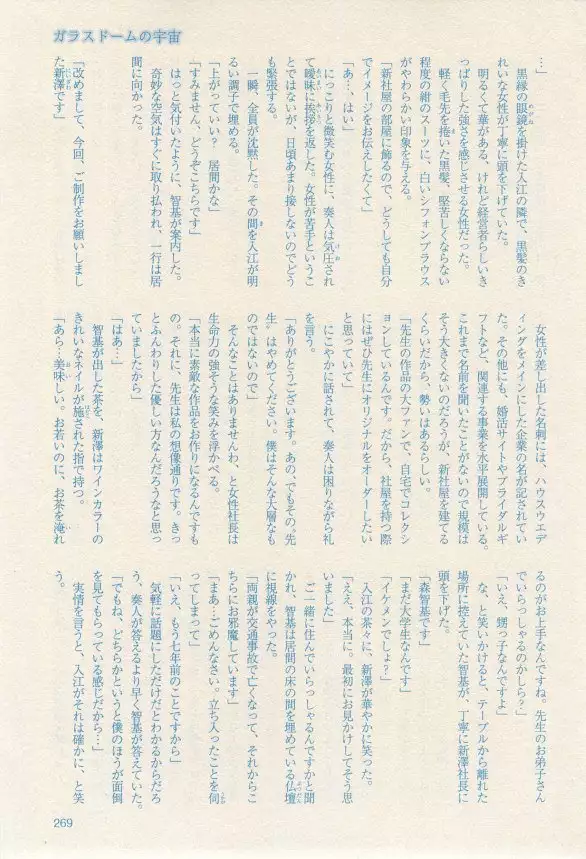 ガラスドームの宇宙
…」
黒縁の眼鏡を掛けた入江の隣で、黒髪のき
れいな女性が丁寧に頭を下げていた。
明るくて華がある、けれど経営者らしいき
っぱりした強さを感じさせる女性だった。
軽く毛先を捲いた黒髪、堅苦しくならない
程度の紺のスーツに、白いシフォンブラウス
がやわらかい印象を与える。
「新社屋の部屋に飾るので、どうしても自分
でイメージをお伝えしたくて」
「あ…、はい」
にっこりと微笑む女性に、奏人は気圧され
て曖昧に挨拶を返した。女性が苦手というこ
とではないが、日頃あまり接しないのでどう
も緊張する。
一瞬、全員が沈黙した。その間を入江が明
るい調子で埋める。
「上がっていい？　居間かな」
「すみません、どうぞこちらです」
はっと気付いたように、智基が案内した。
奇妙な空気はすぐに取り払われ、一行は居
間に向かった。
「改めまして、今回、ご制作をお願いしまし
た新澤です」
女性が差し出した名刺には、ハウスウエデ
ィングをメインにした企業の名が記されてい
た。その他にも、婚活サイトやブライダルギ
フトなど、関連する事業を水平展開している。
これまで名前を聞いたことがないので規模は
そう大きくないのだろうが、新社屋を建てる
くらいだから、勢いはあるらしい。
「先生の作品の大ファンで、自宅でコレクシ
ョンしているんです。だから、社屋を持つ際
にはぜひ先生にオリジナルをオーダーしたい
と思っていて」
にこやかに話されて、奏人は困りながら礼
を言う。
「ありがとうございます。あの、でもその〝先
生〟はやめてください。僕はそんな大層なも
のではないので」
そんなことはありませんわ、と女性社長は
生命力の強そうな笑みを浮かべる。
「本当に素敵な作品をお作りになるんですも
の。それに、先生は私の想像通りです。きっ
とふんわりした優しい方なんだろうなと思っ
ていましたから」
「はあ…」
智基が出した茶を、新澤はワインカラーの
きれいなネイルが施された指で持つ。
「あら…美味しい。お若いのに、お茶を淹れ
るのがお上手なんですね。先生のお弟子さん
でいらっしゃるのかしら？」
「いえ、甥っ子なんですよ」
な、と笑いかけると、テーブルから離れた
場所に控えていた智基が、丁寧に新澤社長に
頭を下げた。
「森智基です」
「まだ大学生なんです」
「イケメンでしょ？」
入江の茶々に、新澤が華やかに笑った。
「ええ、本当に。最初にお見かけしてそう思
いました」
ご一緒に住んでいらっしゃるんですかと聞
かれ、智基は居間の床の間を埋めている仏壇
に視線をやった。
「両親が交通事故で亡くなって、それからこ
ちらにお邪魔しています」
「まあ…ごめんなさい。立ち入ったことを伺
ってしまって」
「いえ、もう七年前のことですから」
気軽に話題にしただけだとわかるからだろ
う、奏人が答えるより早く智基が答えていた。
「でもね、どちらかというと僕のほうが面倒
を見てもらっている感じだから…」
実情を言うと、入江がそれは確かに、と笑
う。
269